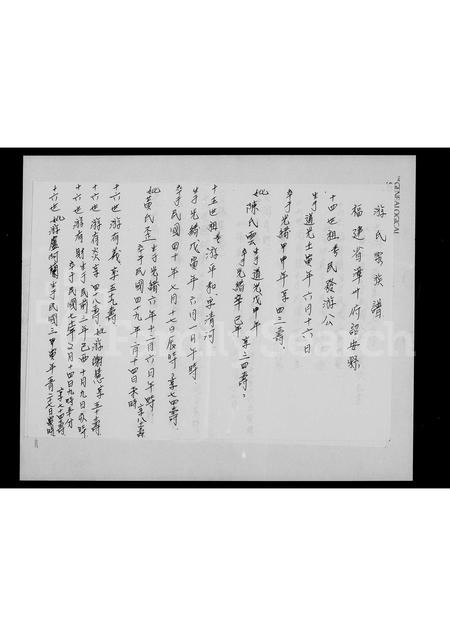 游氏家族譜
福建省漳州府詔安縣
十四世祖考民發游公
生于道光壬寅年六月十六日
卒于光緒甲申年享四二壽
妣陳氏雲生于道光戊申年
卒于光緒辛巳年享三四壽
十五世祖考游平和 清河
生于光緒戊寅年六月一日午時
卒于民國四十年七月十七日辰時享七四壽
妣黃氏 生于光緒六年十二月六日午時
卒于民國四九年二月十四日未時享八壽
十六世游有義享五九壽
十六世游有炎享四八壽妣游謝慧享五十壽
十六世游有財生于民前一年己酉十月九日 時
卒于民國 年二月十四日九時半分
享七十四壽
十六世妣游盧阿蘭生于民國三甲寅年 七日 時
GENEALOGICAL
FamilySearch